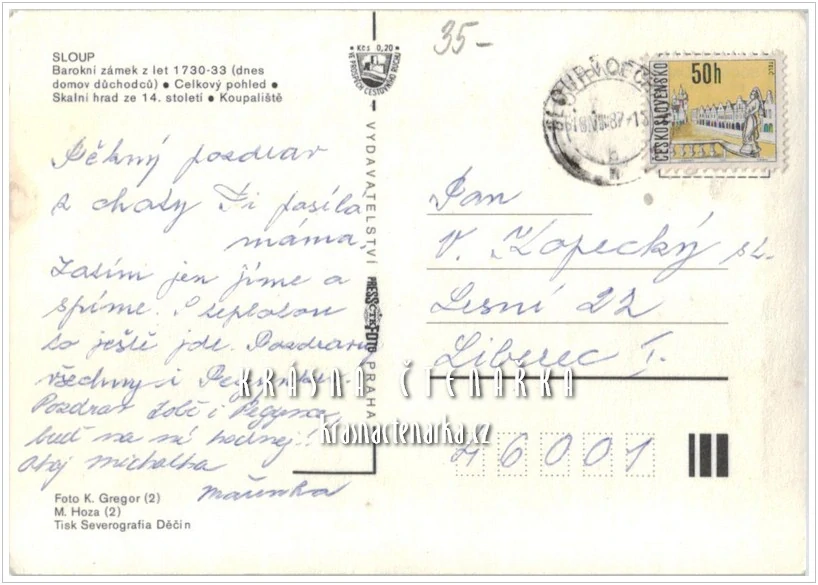 SLOUP
Barokní zámek z let 1730-33 (dnes
domov důchodců) ● Celkový pohled ●
Skalní hrad ze 14. století ● Koupaliště
Kčs 0,20
VE PROSPĚCH CESTOVNÍHO RUCHU
35-
50h
ČESKOSLOVENSKO
Pěkný pozdrav
z chaty Ti posílá
máma.
Zatím jen jíme a
spíme. S teplotou
to ještě jde. Pozdravuj
všechny i
Pozdrav Tobě i
buď na ně hodnej!
Ahoj Michalka
Mařenka
VYDAVATELSTVÍ PRESSFOTO PRAHA
Pan
V. Kopecký st.
Lesní 22
Liberec I.
46001
KRÁSNÁ ČTENÁRKA
krasnactenarka.cz
Foto K. Gregor (2)
M. Hoza (2)
Tisk Severografia Děčín